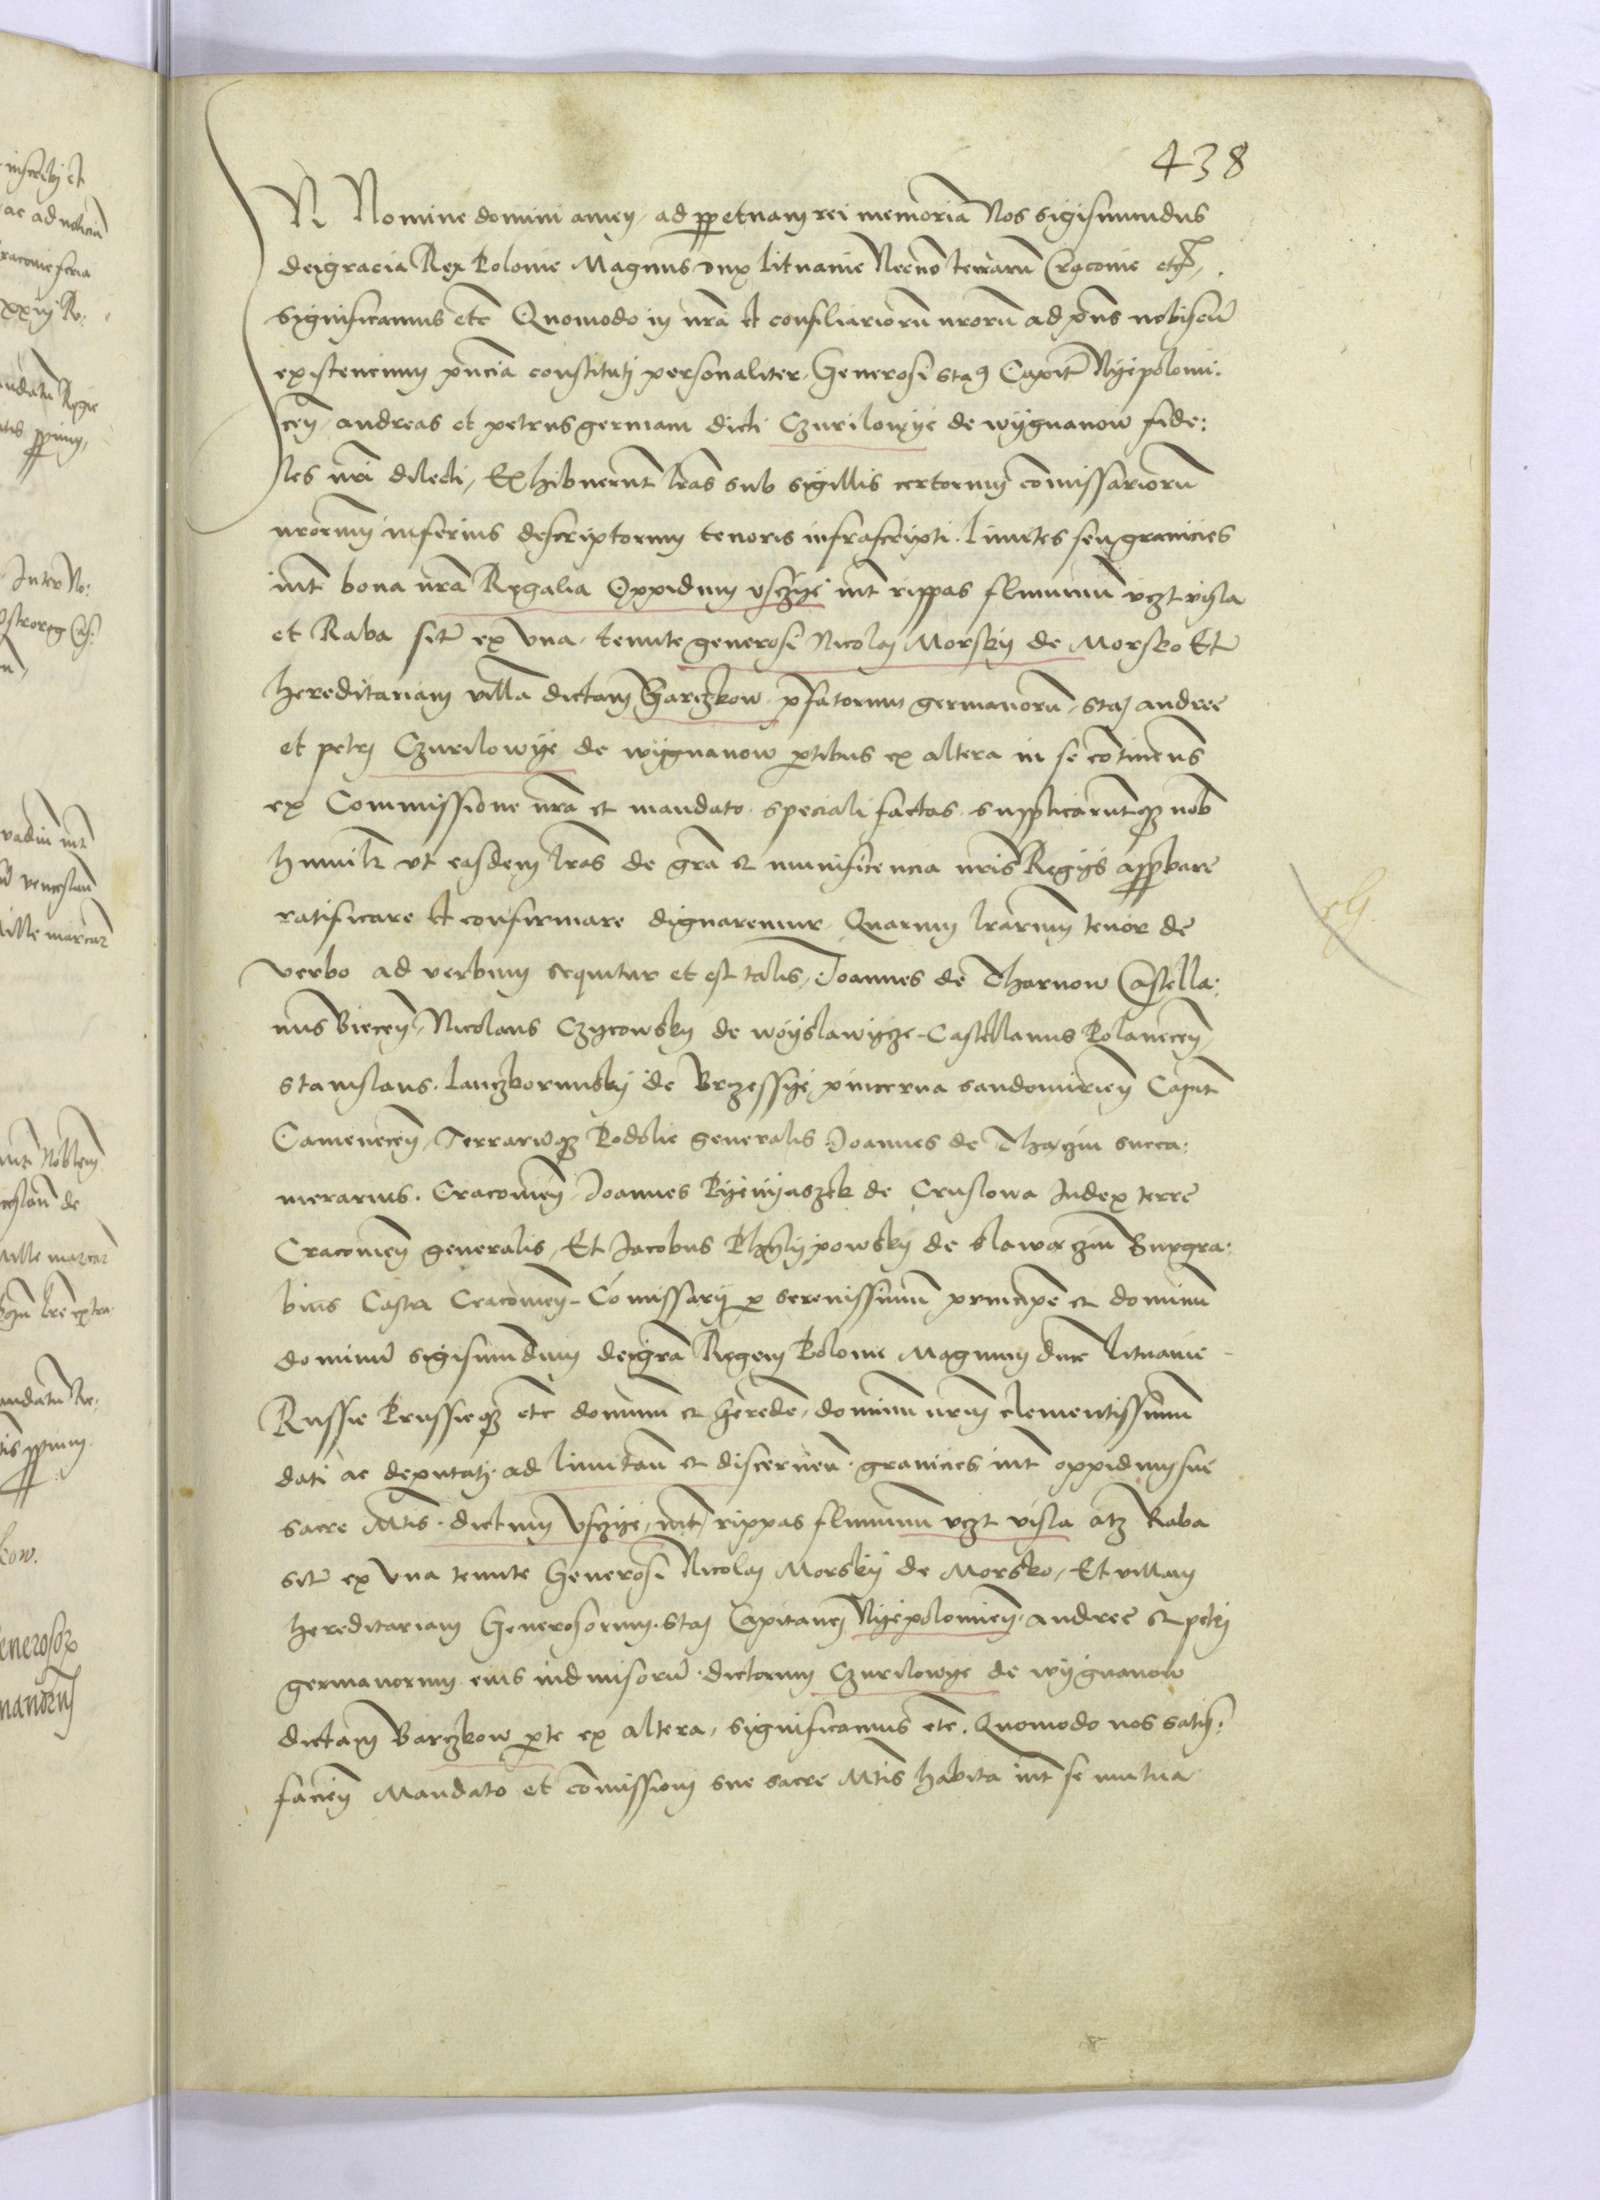 438
In Nomine domini amen, ad ppetuam rei memoria Nos sigismundus
dei gracia Rex Polonie Magnus dux lituanie Necno terraru Cracovie etc,
significamus etc Quomodo in nra et consiliarioru nroru ad pns nobiscu
existencium pncia constituti personaliter. Generosi sta9 Capit Nyepolomi:
cen, andreas et petrus germani dicti Czurilowye de wygnanow fide:
les nri dilecti, Exhibuerunt lras sub sigillis certorum comissarioru
nrorum inferius descriptorum tenoris infrascripti. limites seu granicies
int bona nra Regalia Oppidum vsczye int rippas fluminu vczt visla
et Raba sit ex vna. tenute generosi Nicolaj Morsky de Morsko Et
hereditariam villa dictam Barczkow. pfatorum germanoru, staj andree
et petrj Czurilowye de wygnanow ptibus ex altera in se continens
ex Commissione nra et mandato speciali factas. supplicaruntqz nob
humilr vt easdem lras de gra et munificencia nris Regijs approbare
ratificare et confirmare dignaremur. Quarum lrarum tenor de
verbo ad verbum sequitur et est talis, Joannes de Tharnow Castella:
nus Biecen, Nicolaus Czycowsky de woyslawycze Castellanus Polanecen,
stanislaus. lanczkorunsky de Brzessye pincerna sandomirien Capit
Camenecen, Terrarumqz Podolie generalis Joannes de Thaczin succa:
merarius. Cracovien, Joannes Pyenyaszek de Cruslowa Judex terre
Cracovien generalis, Et Jacobus Phylypowsky de slawczin Burgra:
bius Castri Cracovien Comissarij p serenissimum principe et dominu
dominu sigismundum dei gra Regem Polonie Magnum duce lituanie
Russie Prussieqz etc dominum et herede, dominum nrum clementissimum
dati ac deputatj. ad limitan et discernen. granicies int oppidum sue
sacre Mtis. dictum vsczye, int rippas fluminu vczt visla atqz Raba
sit ex vna tenute Generosi Nicolaj Morsky de Morsko, Et villam
hereditariam Generosorum. staj Capitanej Nyepolomicen. andree et petrj
germanorum eius indivisoru. dictorum Czurilowye de wygnanow
dictam Barczkow pte ex altera, significamus etc. Quomodo nos satis:
facien Mandato et comissioni sue sacre Mtis habita int se mutua